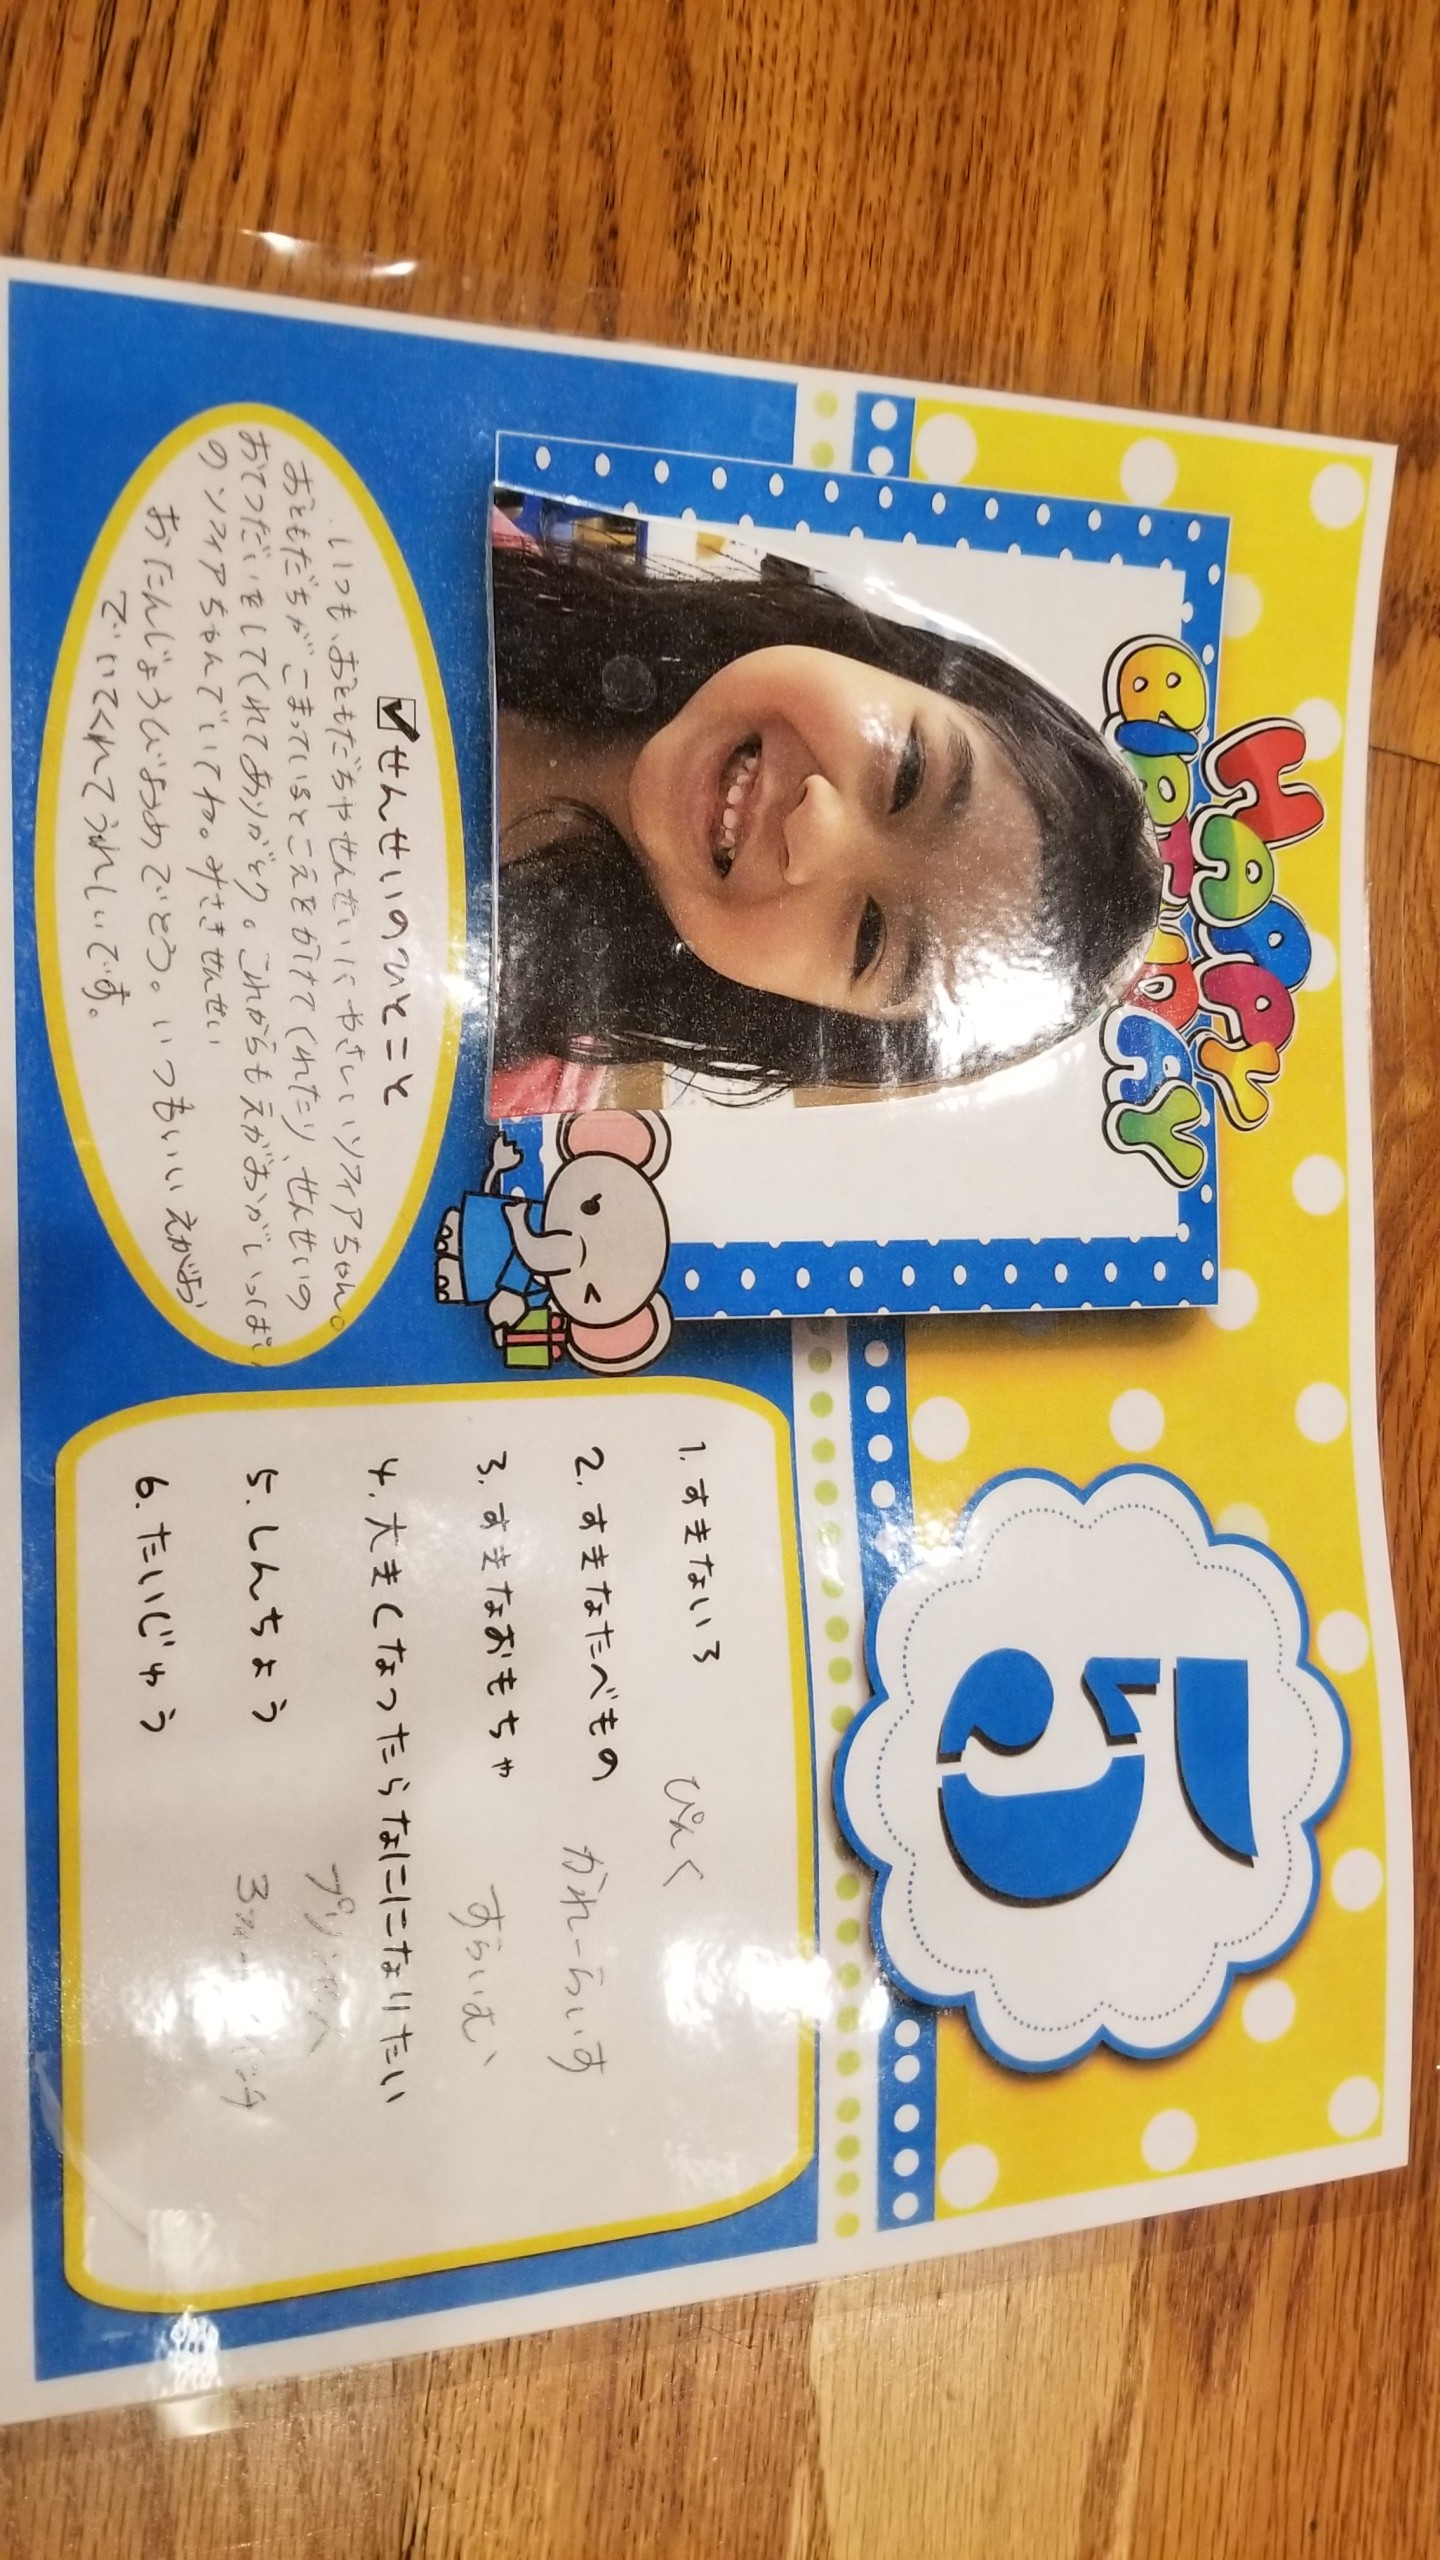 HAPPY
BIRTHDAY
5
せんせいのひとこと
いつも、おともだちやせんせいにやさしいソフィアちゃん。
おともだちがこまっているとこえをかけてくれたり、せんせいの
おてつだいをしてくれてありがとう。これからもえがおがいっぱい
のソフィアちゃんでいてね。みさきせんせい
おたんじょうびおめでとう。いつもいいえがお
でいてくれてうれしいです。
1.すきないろ
ぴんく
2.すきなたべもの
かれーらいす
3.すきなおもちゃ
すらいむ
4.大きくなったらなにになりたい
5.しんちょう
6.たいじゅう